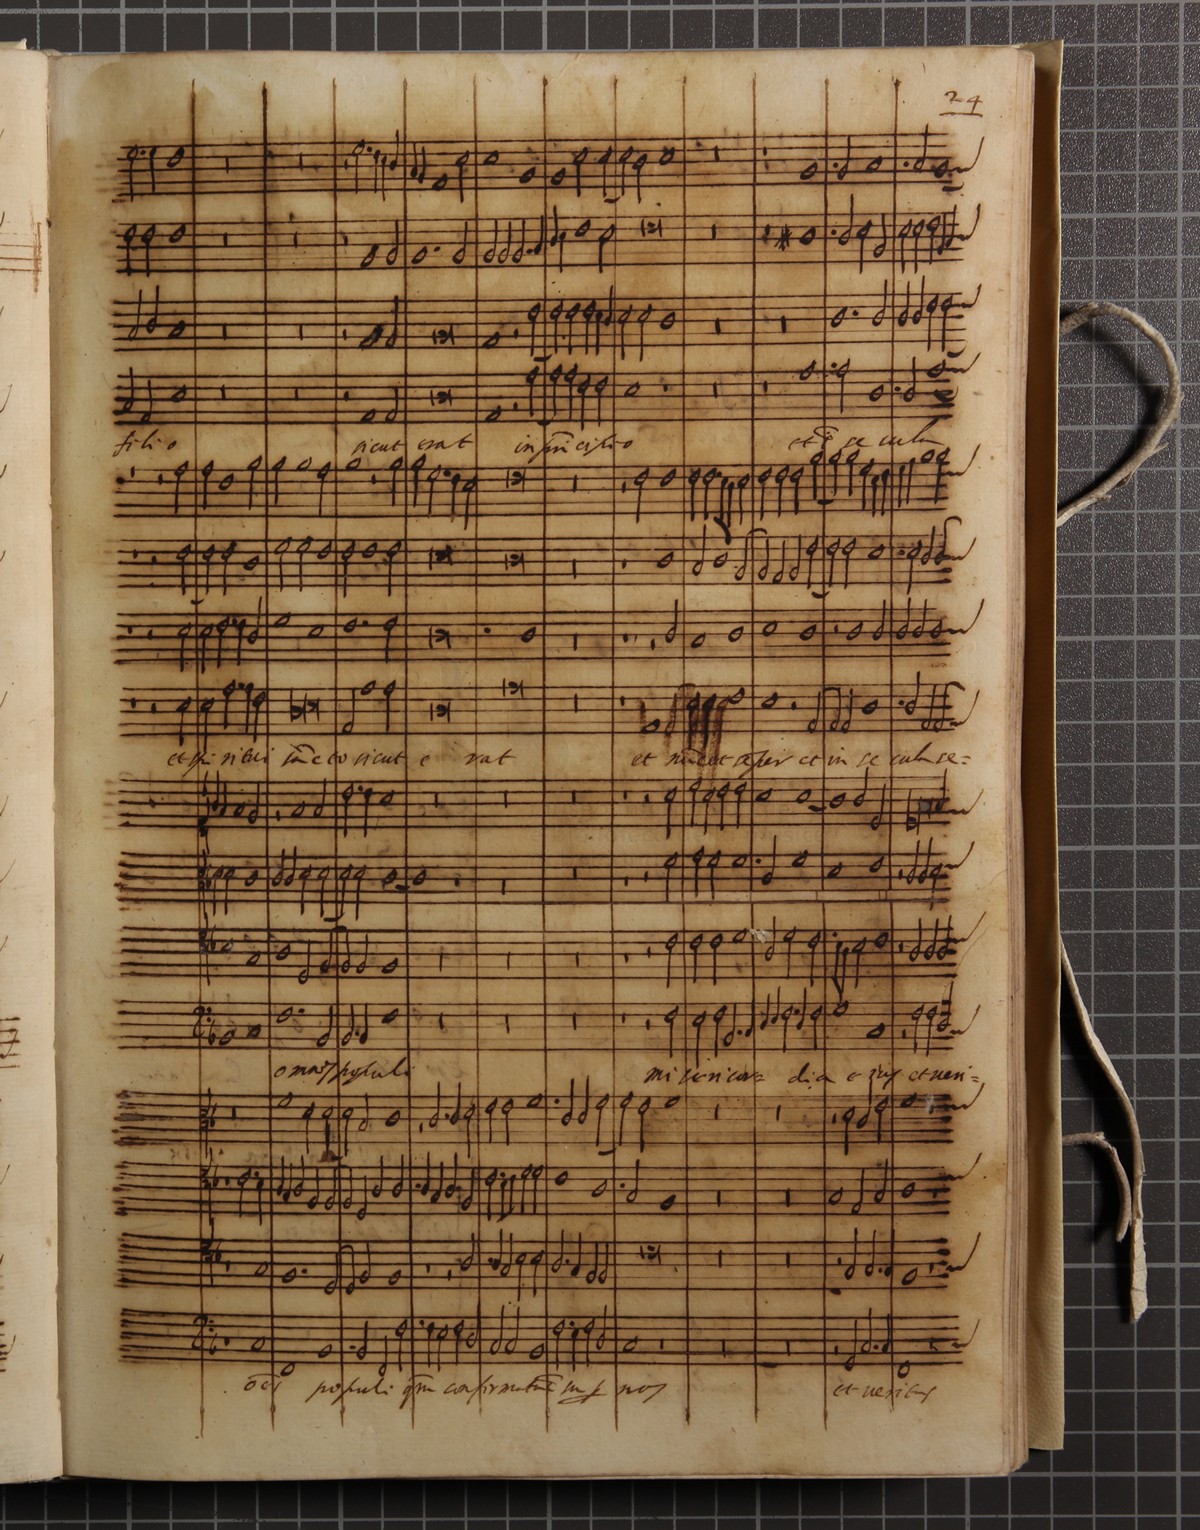 24
filio sicut erat in prīcipio et ī se cula
et spi ritui sācto sicut e rat et nūc et sēper et in se cula se=
omnes populi misericor= dia e ius et veri=
oēs populi qm̄ confirmata ē sup nos et veritas